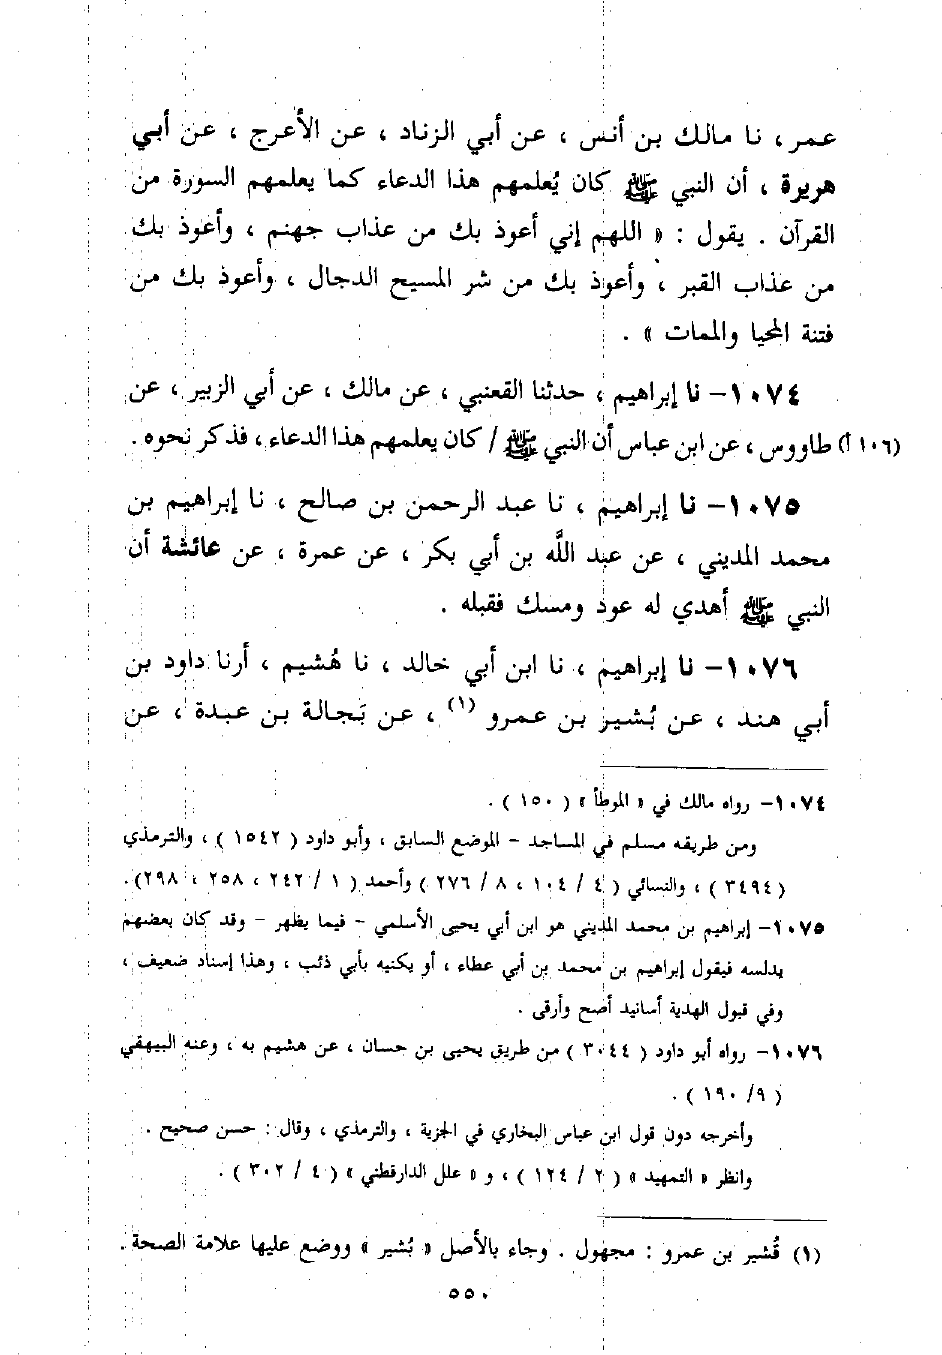 عمر ، نا مالك بن أنس ، عن أبي الزناد ، عن الأعرج ، عن أبي
هريرة ، أن النبي ﷺ كان يُعلمهم هذا الدعاء كما يعلمهم السورة من
القرآن . يقول : « اللهم إني أعوذ بك من عذاب جهنم ، وأعوذ بك
من عذاب القبر ، وأعوذ بك من شر المسيح الدجال ، وأعوذ بك من
فتنة المحيا والممات » .
١٠٧٤- نا إبراهيم ، حدثنا القعنبي ، عن مالك ، عن أبي الزبير ، عن
(١٠٦ أ) طاووس ، عن ابن عباس أن النبي ﷺ / كان يعلمهم هذا الدعاء ، فذكر نحوه .
١٠٧٥- نا إبراهيم ، نا عبد الرحمن بن صالح ، نا إبراهيم بن
محمد المديني ، عن عبد اللَّه بن أبي بكر ، عن عمرة ، عن عائشة أن
النبي ﷺ أهدي له عود ومسك فقبله .
١٠٧٦- نا إبراهيم ، نا ابن أبي خالد ، نا هُشيم ، أرنا داود بن
أبي هند ، عن بُشير بن عمرو (١) ، عن بَجالة بن عبدة ، عن
١٠٧٤- رواه مالك في « الموطأ » ( ١٥٠ ) .
ومن طريقه مسلم في المساجد - الموضع السابق ، وأبو داود ( ١٥٤٢ ) ، والترمذي
( ٣٤٩٤ ) ، والنسائي ( ٤ / ١٠٤ ، ٨ / ٢٧٦ ) وأحمد ( ١ / ٢٤٢ ، ٢٥٨ ، ٢٩٨).
١٠٧٥- إبراهيم بن محمد المديني هو ابن أبي يحيى الأسلمي - فيما يظهر - وقد كان بعضهم
يدلسه فيقول إبراهيم بن محمد بن أبي عطاء ، أو يكنيه بأبي ذئب ، وهذا إسناد ضعيف ،
وفي قبول الهدية أسانيد أصح وأرقى .
١٠٧٦- رواه أبو داود ( ٣٠٤٤ ) من طريق يحيى بن حسان ، عن هشيم به ، وعنه البيهقي
( ٩/ ١٩٠ ) .
وأخرجه دون قول ابن عباس البخاري في الجزية ، والترمذي ، وقال : حسن صحيح .
وانظر « التمهيد » ( ٢ / ١٢٤ ) ، و « علل الدارقطني » ( ٤ / ٣٠٢ ) .
(١) قُشير بن عمرو : مجهول . وجاء بالأصل « بُشير » ووضع عليها علامة الصحة .
٥٥٠